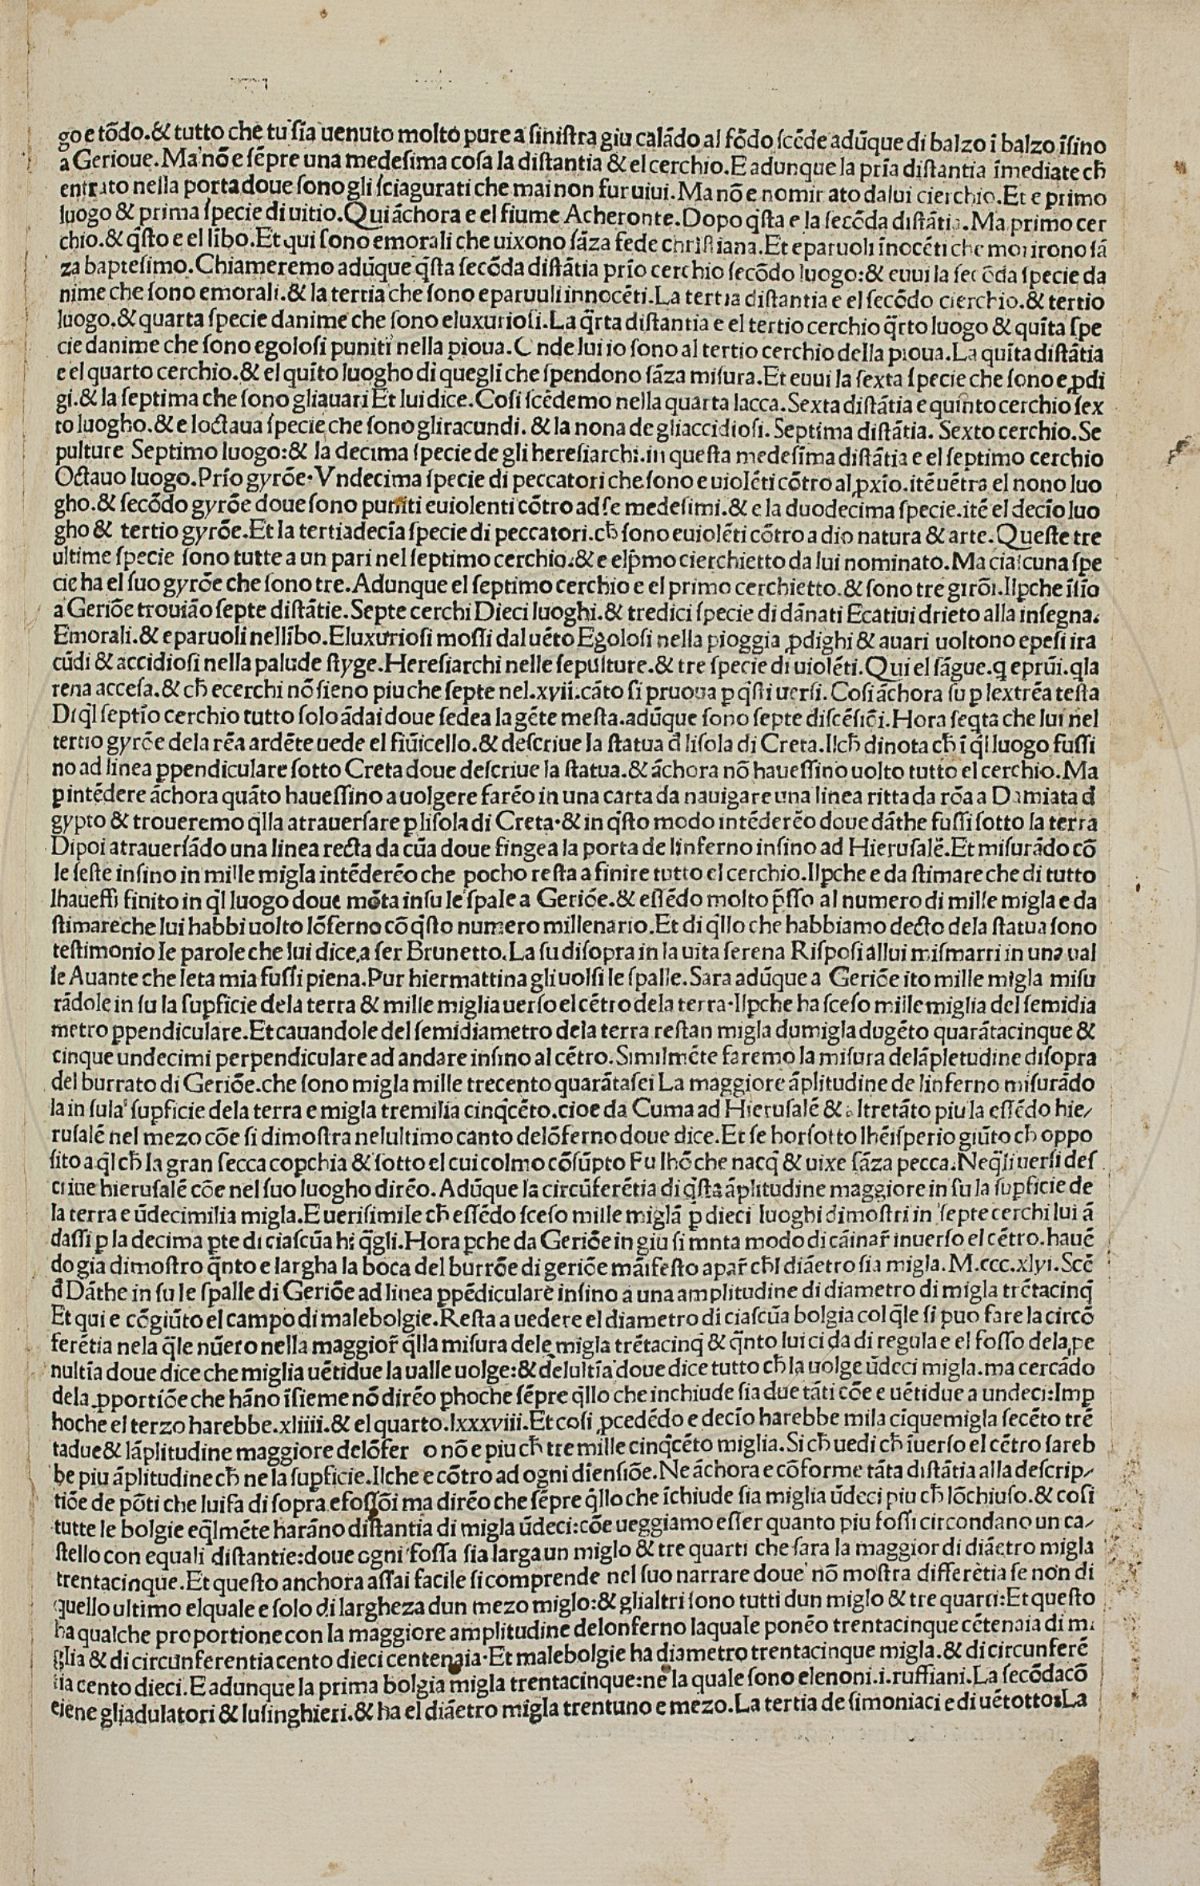 go e tõdo.& tutto che tu sia uenuto molto pure a sinistra giu calãdo al fõdo scẽde adũque di balzo ĩ balzo ĩsino
a Gerioue. Ma nõ e sẽpre una medesima cosa la distantia & el cerchio. E adunque la pria distantia ĩmediate cħ
entrato nella porta doue sono gli sciagurati che mai non fur uiui. Ma nõ e nominato da lui cierchio. Et e primo
luogo & prima specie di uitio. Qui ãchora e el fiume Acheronte. Dopo q̃sta e la secõda distãtia. Ma primo cer
chio. & q̃sto e el lĩbo. Et qui sono emorali che uixono sãza fede christiana. Et eparuoli ĩnocẽti che morirono sã
za baptesimo. Chiameremo adũque q̃sta secõda distãtia prĩo cerchio secõdo luogo: & euui la secõda specie da
nime che sono emorali. & la tertia che sono eparuuli innocẽti. La tertia distantia e el secõdo cierchio. & tertio
luogo. & quarta specie danime che sono eluxuriosi. La q̃rta distantia e el tertio cerchio q̃rto luogo & quĩta spe
cie danime che sono egolosi puniti nella pioua. Onde lui io sono al tertio cerchio della pioua. La quĩta distãtia
e el quarto cerchio. & el quĩto luogho di quegli che spendono sãza misura. Et euui la sexta specie che sono e ꝓdi
gi. & la septima che sono gliauari Et lui dice. Cosi scẽdemo nella quarta lacca. Sexta distãtia e quinto cerchio sex
to luogho. & e loctaua specie che sono gliracundi. & la nona de gliaccidiosi. Septima distãtia. Sexto cerchio. Se
pulture Septimo luogo: & la decima specie de gli heresiarchi. in questa medesĩma distãtia e el septimo cerchio
Octauo luogo. Prĩo gyrõe. Vndecima specie di peccatori che sono e uiolẽti cõtro al ꝓxĩo. itẽ uẽtra el nono luo
gho. & secõdo gyrõe doue sono puniti euiolenti cõtro ad se medesimi. & e la duodecima specie. itẽ el decĩo luo
gho & tertio gyrõe. Et la tertiadecĩa specie di peccatori. cħ sono euiolẽti cõtro a dio natura & arte. Queste tre
ultime specie sono tutte a un pari nel septimo cerchio. & e elp̃mo cierchietto da lui nominato. Ma ciascuna spe
cie ha el suo gyrõe che sono tre. Adunque el septimo cerchio e el primo cerchietto. & sono tre girõi. Ilꝑche ĩsĩo
a Geriõe trouião septe distãtie. Septe cerchi Dieci luoghi. & tredici specie di dãnati Ecatiui drieto alla insegna.
Emorali. & eparuoli nellĩbo. Eluxuriosi mossi dal uẽto Egolosi nella pioggia ꝓdighi & auari uoltono epesi ira
cũdi & accidiosi nella palude styge. Heresiarchi nelle sepulture. & tre specie di uiolẽti. Qui el sãgue. q̃ epruĩ. q̃la
rena accesa. & cħ ecerchi nõ sieno piu che septe nel. xvii. cãto si pruoua ꝑ q̃sti uersi. Cosi ãchora su ꝑ lextrẽa testa
Di q̃l septĩo cerchio tutto solo ãdai doue sedea la gẽte mesta. adũque sono septe discẽsiõi. Hora seq̃ta che lui nel
tertio gyrõe dela rẽa ardẽte uede el fiũicello. & descriue la statua đ lisola di Creta. Ilcħ dinota cħ ĩ q̃l luogo fussi
no ad linea ꝑpendiculare sotto Creta doue descriue la statua. & ãchora nõ hauessino uolto tutto el cerchio. Ma
ꝑ intẽdere ãchora quãto hauessino a uolgere farẽo in una carta da nauigare una linea ritta da rõa a Damiata đ
gypto & troueremo q̃lla atrauersare ꝑ lisola di Creta. & in q̃sto modo intẽderẽo doue dãthe fussi sotto la terra
Dipoi atrauersãdo una linea recta da cũa doue finge a la porta de linferno insino ad Hierusalẽ. Et misurãdo cõ
le seste insino in mille migla intẽderẽo che pocho resta a finire tutto el cerchio. Ilꝑche e da stimare che di tutto
lhauessi finito in q̃l luogo doue mõta in su le spale a Geriõe. & essẽdo molto p̃sso al numero di mille migla e da
stimare che lui habbi uolto lõferno cõ q̃sto numero millenario. Et di q̃llo che habbiamo decto dela statua sono
testimonio le parole che lui dice a ser Brunetto. La su disopra in la uita serena Risposi allui mi smarri in una ual
le Auante che leta mia fussi piena. Pur hiermattina gli uolsi le spalle. Sara adũque a Geriõe ito mille migla misu
rãdole in su la supficie dela terra & mille miglia uerso el cẽtro dela terra. Ilꝑche ha sceso mille miglia del semidia
metro ꝑpendiculare. Et cauandole del semidiametro dela terra restan migla dumigla dugẽto quarãtacinque &
cinque undecimi perpendiculare ad andare insino al cẽtro. Similmẽte faremo la misura delãpletudine disopra
del burrato di Geriõe. che sono migla mille trecento quarãtasei La maggiore ãplitudine de linferno misurãdo
la in su la supficie dela terra e migla tremilia cinq̃cẽto. cioe da Cuma ad Hierusalẽ & altretãto piu la essẽdo hie/
rusalẽ nel mezo cõe si dimostra nelultimo canto delõferno doue dice. Et se hor sotto lhẽisperio giũto cħ oppo
sito a q̃l cħ la gran secca copchia & sotto el cui colmo cõsũpto Fu lhõ che nacq̃ & uixe sãza pecca. Neq̃li uersi des
criue hierusalẽ cõe nel suo luogho dirẽo. Adũque la circũferẽtia di q̃sta ãplitudine maggiore in su la supficie de
la terra e ũdecimilia migla. E uerisimile cħ essẽdo sceso mille miglã ꝑ dieci luoghi dimostri in septe cerchi lui ã
dassi ꝑ la decima ꝑte di ciascũa hi q̃gli. Hora ꝑche da Geriõe in giu si mnta modo di cãinar̃ inuerso el cẽtro. hauẽ
do gia dimostro q̃nto e largha la boca del burrõe di geriõe mãifesto apar̃ cħl diãetro sia migla. M. ccc. xlvi. Scẽ
đ Dãthe in su le spalle di Geriõe ad linea ꝑpẽdiculare insino a una amplitudine di diametro di migla trẽtacinq̃
Et qui e cõgiũto el campo di malebolgie. Resta a uedere el diametro di ciascũa bolgia col q̃le si puo fare la circõ
ferẽtia nela q̃le nũero nella maggior̃ q̃lla misura dele migla trẽtacinq̃ & q̃nto lui ci da di regula e el fosso dela pe
nultĩa doue dice che miglia uẽtidue la ualle uolge: & delultĩa doue dice tutto cħ la uolge ũdeci migla. ma cercãdo
dela ꝓportiõe che hãno ĩsieme nõ dirẽo ꝑhoche sẽpre q̃llo che inchiude sia due tãti cõe e uẽtidue a undeci: Imꝑ
hoche el terzo harebbe. xliiii. & el quarto. lxxxviii. Et cosi ꝓcedẽdo e decĩo harebbe mila cĩquemigla secẽto trẽ
tadue & lãplitudine maggiore delõfer o nõ e piu cħ tre mille cinq̃cẽto miglia. Si cħ uedi cħ ĩuerso el cẽtro sareb
be piu ãplitudine cħ ne la supficie. Ilche e cõtro ad ogni dĩensiõe. Ne ãchora e cõforme tãta distãtia alla descrip/
tiõe de põti che lui fa di sopra e fossõi ma dirẽo che sẽpre q̃llo che ĩchiude sia miglia ũdeci piu cħ lõchiuso. & cosi
tutte le bolgie eq̃lmẽte harãno distantia di migla ũdeci: cõe ueggiamo esser quanto piu fossi circondano un ca/
stello con equali distantie: doue ogni fossa sia larga un miglo & tre quarti che sara la maggior di diãetro migla
trentacinque. Et questo anchora assai facile si comprende nel suo narrare doue nõ mostra differẽtia se non di
quello ultimo elquale e solo di largheza dun mezo miglo: & glialtri sono tutti dun miglo & tre quarti: Et questo
ha qualche proportione con la maggiore amplitudine delonferno laquale ponẽo trentacinque cẽtenaia di mi
glia & di circunferentia cento dieci centenaia. Et malebolgie ha diametro trentacinque migla. & di circunferẽ
tia cento dieci. E adunque la prima bolgia migla trentacinque: ne la quale sono elenoni. i. ruffiani. La secõda cõ
tiene gliadulatori & lusinghieri. & ha el diãetro migla trentuno e mezo. La tertia de simoniaci e di uẽtotto: La